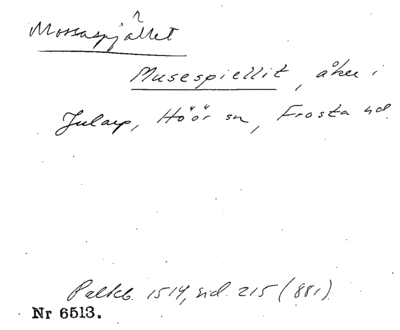 Mossaspjället
Musespiellit, åker i
Jularp, Höör sn, Frosta hd.
Palteb. 1514, sid. 215 (881).
Nr 6513.